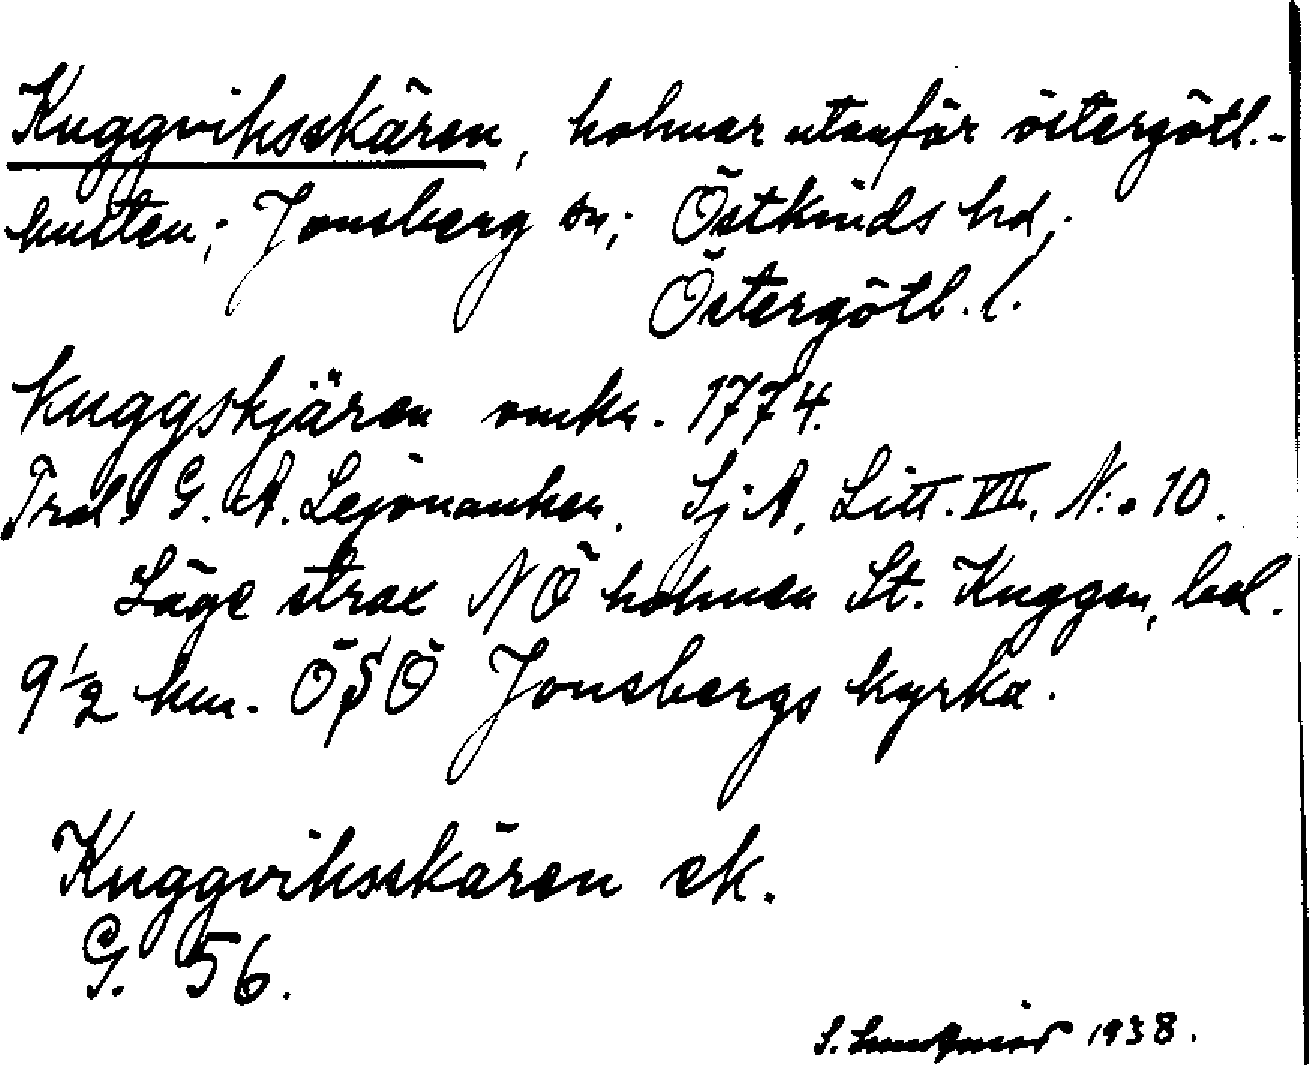 Kuggviksskären, holmar utanför östergötl.-
kusten; Jonsberg sn; Östkinds hd;
Östergötl. l.
Kuggskjären omkr. 1774.
Trol. G. A. Lejonanker. Sj. A. Litt. VIII. N:o 10.
Läge strax NÖ holmen St. Kuggen, bel.
9 1/2 km. ÖSÖ Jonsbergs kyrka.
Kuggviksskären ek.
G. 56.
S. 1938.